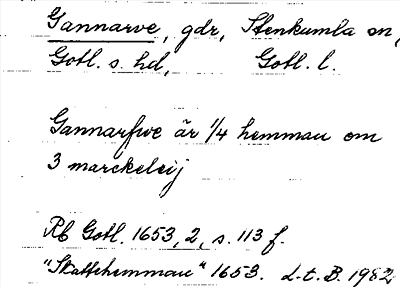 Gannarve, gdr, Stenkumla sn,
Gotl. s. hd, Gotl. l.
Gannarfwe är 1/4 hemman om
3 marckeleij
Rb Gotl. 1653, 2, s. 113 f.
"Skattehemman" 1653. d. t. B. 1982